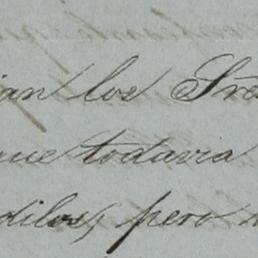 ian los Sres
que todavia
dilos, pero